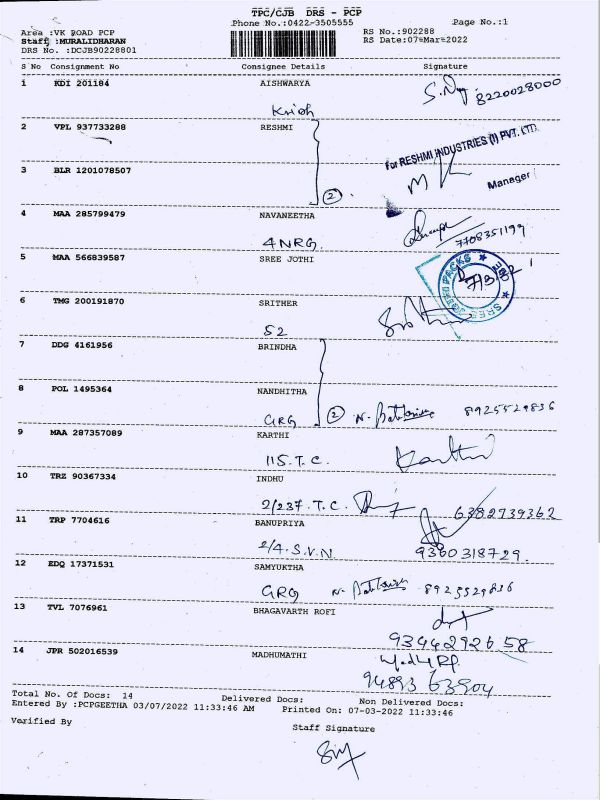 TPC/CJB DRS - PCP
Phone No.:0422-3505555 Page No.:1
Area :VK ROAD PCP RS No.:902288
Staff :MURALIDHARAN RS Date:07-Mar-2022
DRS No. :DCJB90228801
S No Consignment No Consignee Details Signature
1 KDI 201184 AISHWARYA
8220028000
Krish
2 VPL 937733288 RESHMI
For RESHMI INDUSTRIES (I) PVT. LTD.
3 BLR 1201078507
Manager
2
4 MAA 285799479 NAVANEETHA
4 NRG. 7708351199
5 MAA 566839587 SREE JOTHI
6 TMG 200191870 SRITHER
52
7 DDG 4161956 BRINDHA
8 POL 1495364 NANDHITHA
GRG 2 8925529836
9 MAA 287357089 KARTHI
115. T. C. Karthi
10 TRZ 90367334 INDHU
2/237. T. C. 6382739362
11 TRP 7704616 BANUPRIYA
2/4. S.V.N. 9360318729.
12 EDQ 17371531 SAMYUKTHA
GRG 8925529836
13 TVL 7076961 BHAGAVARTH ROFI
9344292658
14 JPR 502016539 MADHUMATHI
94893 63904
Total No. Of Docs: 14 Delivered Docs: Non Delivered Docs:
Entered By :PCPGEETHA 03/07/2022 11:33:46 AM Printed On: 07-03-2022 11:33:46
Verified By Staff Signature